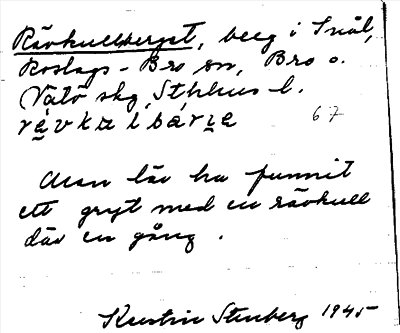 Rävkullsberget, berg i Snål,
Roslags-Bro sn, Bro o.
Vätö skg, Sthlms l.
67
Man lär ha funnit
ett gryt med en rävkull
där en gång.
Kerstin Stenberg 1945